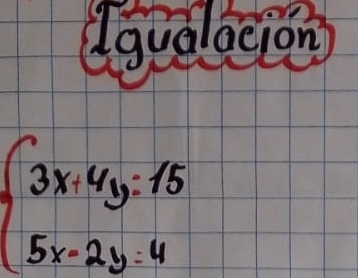 Igualación
3x+4y=15
5x-2y=4